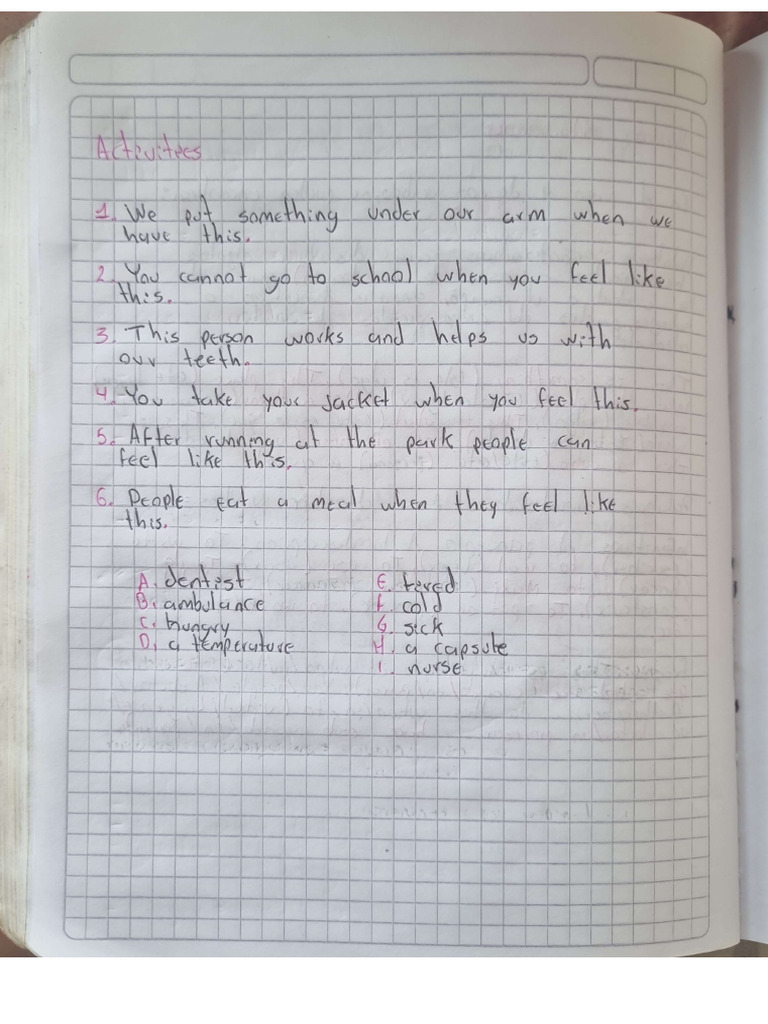 Activitees
1. We put something under our arm when we
have this.
2. You cannot go to school when you feel like
this.
3. This person works and helps us with
our teeth.
4. You take your jacket when you feel this.
5. After running at the park people can
feel like this.
6. People eat a meal when they feel like
this.
A. dentist
B. ambulance
C. hungry
D. a temperature
E. tered
F. cold
G. sick
H. a capsule
I. nurse